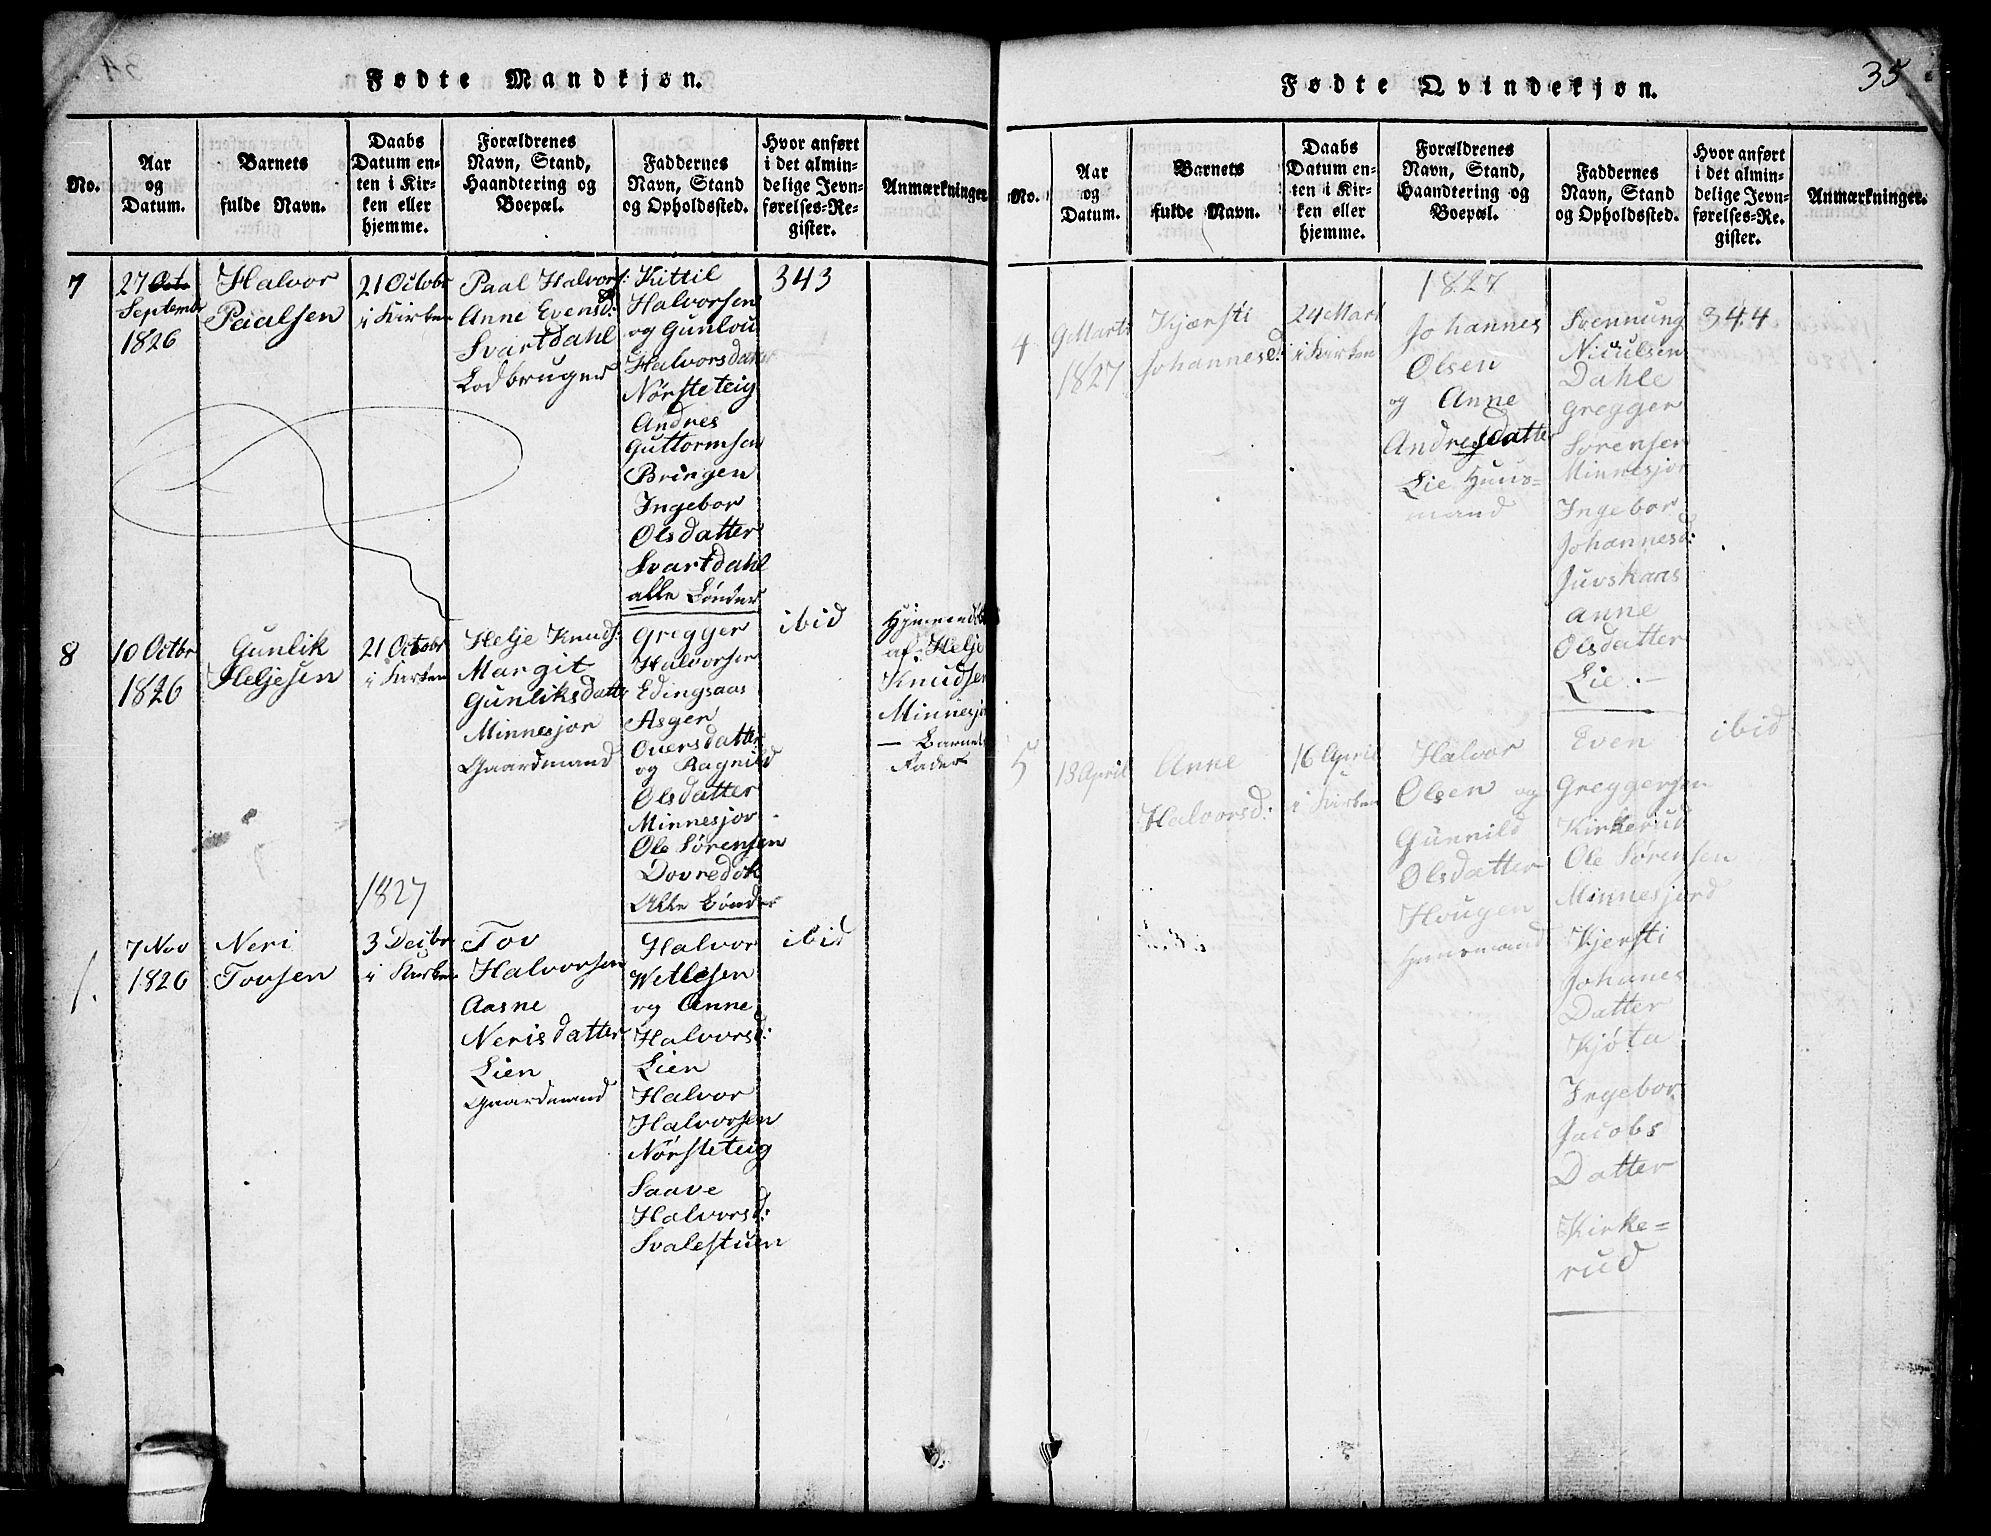 Fødte Mandkjøn.
No.
Aar
og
Datum.
Barnets
fulde Navn.
Daabs
Datum en-
ten i Kir-
ken eller
hjemme.
Forældrenes
Navn, Stand,
Haandtering og
Boepæl.
Faddernes
Navn, Stand
og Opholdssted.
Hvor anført
i det almin-
delige Jevn-
førelses-Re-
gister.
Anmærkninger.
7
27 Oct.
Septembr
1826
Halvor
Paalsen
21 Octobr
i Kirken
Paal Halvors:
Anne Evensd:
Svartdahl
Lodbruger
Kittil
Halvorsen
og Gunlou
Halvorsdatter
Nørsteteig
Andres
Guttormsen
Bringen
Ingebor
Olsdatter
Svartdahl
alle Bønder
343
8
10 Octbr
1826
Gunlik
Heljesen
21 Octobr
i Kirken
Helje Knuds:
Margit
Gunliksdattr
Minnesjor
Gaardmand
Gregger
Halvorsen
Edingsaas
Asger
Ouersdatter
og Ragnild
Olsdatter
Minnesjor
Ole Sørensen
Dovredok
Alle Bønder
ibid
af Helje
Knudsen
Minnesjo
— Barnets
Fader
1827
1.
7 Nov
1826
Neri
Tovsen
3 Decbr
i Kirken
Tov
Halvorsen
Aasne
Nerisdatter
Lien
Gaardmand
Halvor
Wetlesen
og Anne
Halvorsd:
Lien
Halvor
Halvorsen
Nørsteteig
Saave
Halvorsd:
Svalestuen
ibid
35
Fødte Qvindekjøn.
No.
Aar
og
Datum.
Barnets
fulde Navn.
Daabs
Datum en-
ten i Kir-
ken eller
hjemme.
Forældrenes
Navn, Stand,
Haandtering og
Boepæl.
Faddernes
Navn, Stand
og Opholdssted.
Hvor anført
i det almin-
delige Jevn-
førelses-Re-
gister.
Anmærkninger.
1827
4
9 Marts
1827
Kjærsti
Johannesd:
24 Mart
i Kirken
Johannes
Olsen
og Anne
Andresdatter
Lie Huus=
mand
Svennung
Niculsen
Dahle
Gregger
Sørensen
Minnesjor
Ingebor
Johannesd:
Juvskaas
Anne
Olsdatter
Lie. —
344
5
13 April
Anne
Halvorsd:
16 April
i Kirken
Halvor
Olsen og
Gunnild
Olsdatter
Hougen
Huusmand
Even
Greggersen
Kirkerud
Ole Sørensen
Minnesjord
Kjersti
Johanes
Datter
Kjøta
Ingebor
Jacobs
Datter
Kirke=
rud
ibid